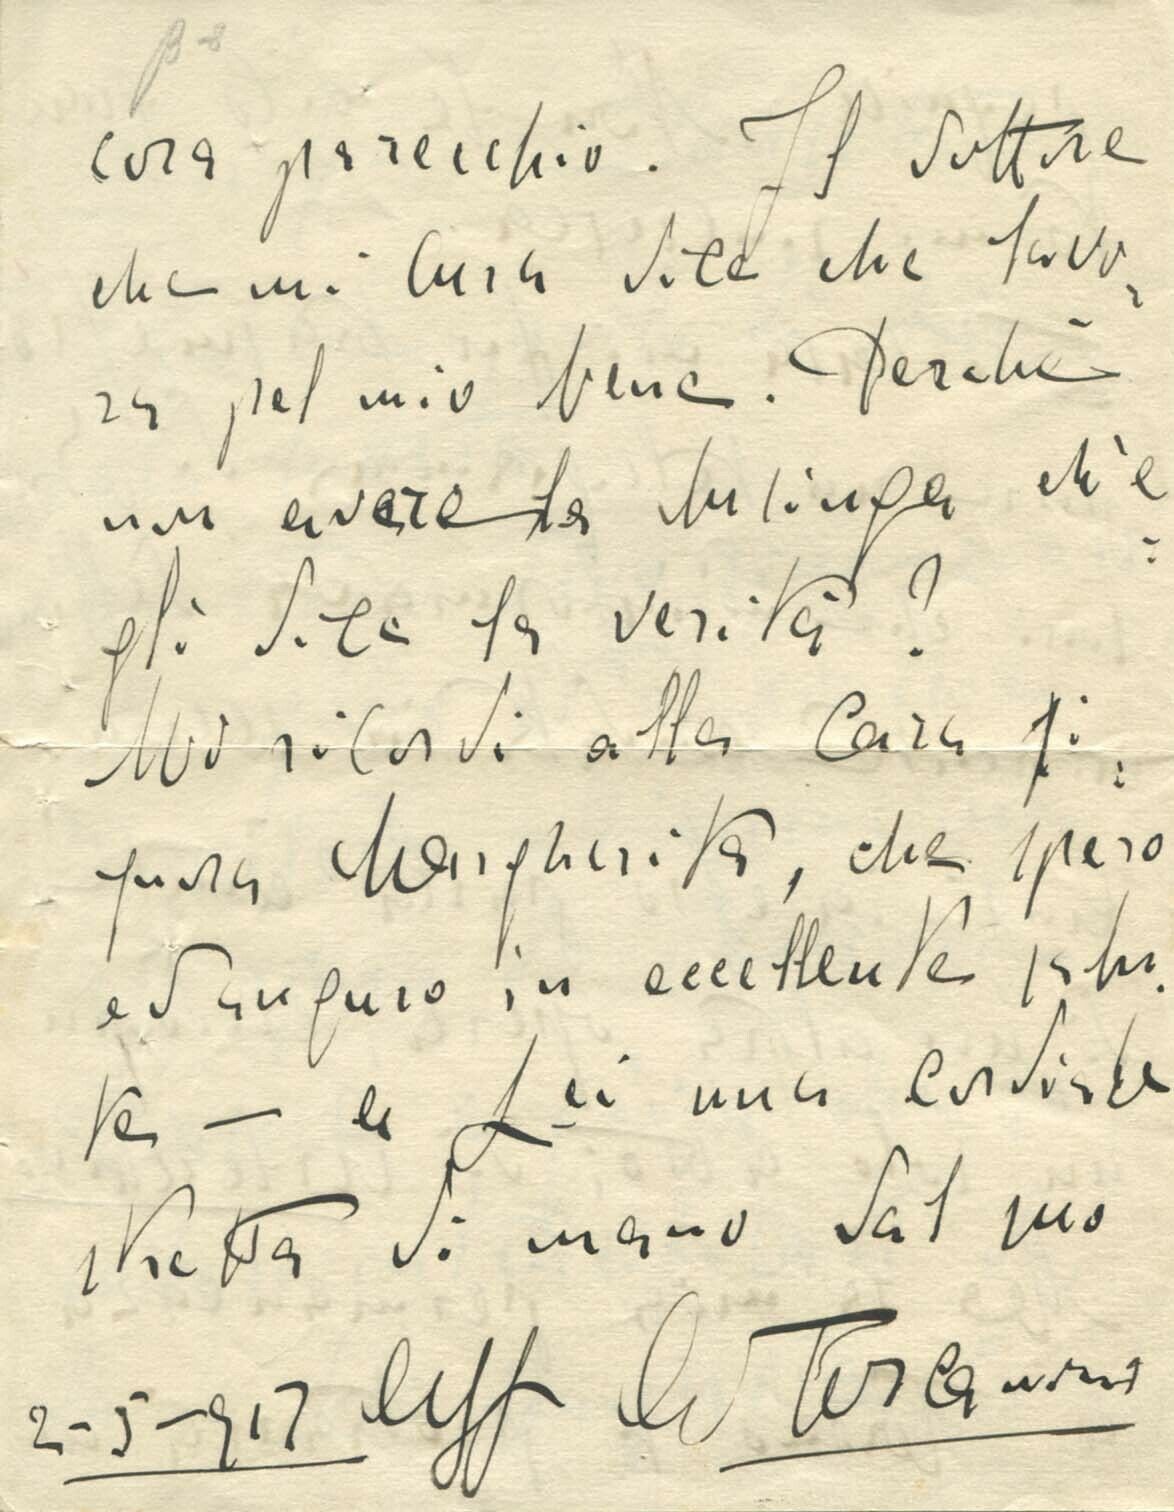 cora parecchio. Il dottore
che mi cura dice che lavo,
ra pel mio bene. Perchè
non avere la lusinga ch'e
gli dice la verità?
Mi ricordi alla cara si,
gnora Margherita, che spero
ed auguro in eccellente salu.
te — a Lei una cordiale
stretta di mano dal suo
2-5-917 Aff A Toscanini